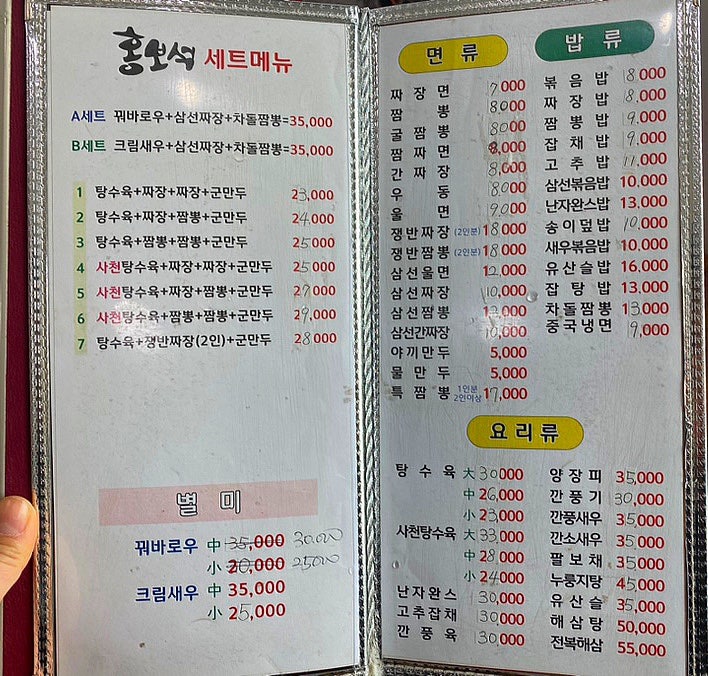 홍보석 세트메뉴
A세트 꿔바로우+삼선짜장+차돌짬뽕=35,000
B세트 크림새우+삼선짜장+차돌짬뽕=35,000
1 탕수육+짜장+짜장+군만두 23,000
2 탕수육+짜장+짬뽕+군만두 24,000
3 탕수육+짬뽕+짬뽕+군만두 25,000
4 사천탕수육+짜장+짜장+군만두 25,000
5 사천탕수육+짜장+짬뽕+군만두 27,000
6 사천탕수육+짬뽕+짬뽕+군만두 29,000
7 탕수육+쟁반짜장(2인)+군만두 28,000
별미
꿔바로우 中 35,000 30.000
小 20,000 25000
크림새우 中 35,000
小 25,000
면류
짜장면 7,000
짬뽕 8,000
굴짬뽕 8000
짬짜면 8,000
간짜장 8,000
우동 8.000
울면 9.000
쟁반짜장 (2인분) 18,000
쟁반짬뽕 (2인분) 18,000
삼선울면 12,000
삼선짜장 10,000
삼선짬뽕 12,000
삼선간짜장 10,000
야끼만두 5,000
물만두 5,000
특짬뽕 1인분 2인이상 17,000
밥류
볶음밥 8.000
짜장밥 8.000
짬뽕밥 9.000
잡채밥 9.000
고추밥 11,000
삼선볶음밥 10.000
난자완스밥 13.000
송이덮밥 10.000
새우볶음밥 10.000
유산슬밥 16.000
잡탕밥 13.000
차돌짬뽕 13.000
중국냉면 9,000
요리류
탕수육 大 30000
中 26,000
小 23,000
사천탕수육 大 33,000
中 28,000
小 24,000
난자완스 30,000
고추잡채 30,000
깐풍육 30,000
양장피 35,000
깐풍기 30,000
깐풍새우 35,000
깐소새우 35,000
팔보채 35,000
누룽지탕 45,000
유산슬 35,000
해삼탕 50,000
전복해삼 55,000